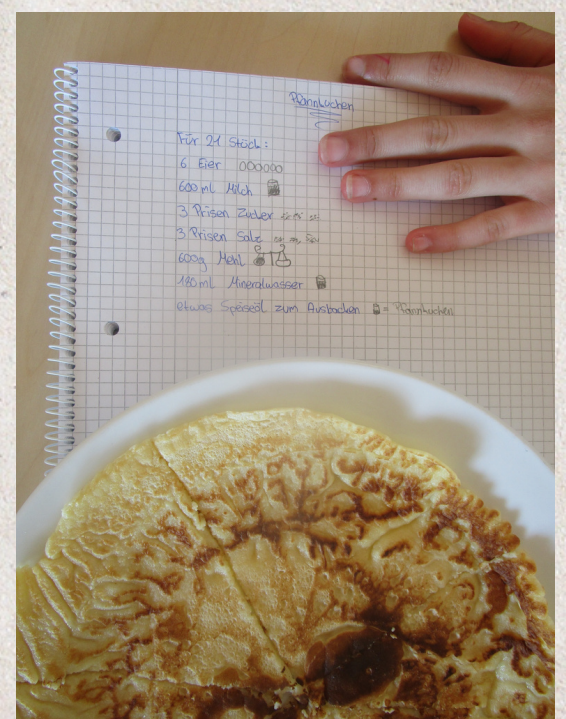 Pfannkuchen
Für 21 Stück:
6 Eier
600 ml Milch
3 Prisen Zucker
3 Prisen Salz
600g Mehl
180 ml Mineralwasser
etwas Speiseöl zum Ausbacken = Pfannkuchen